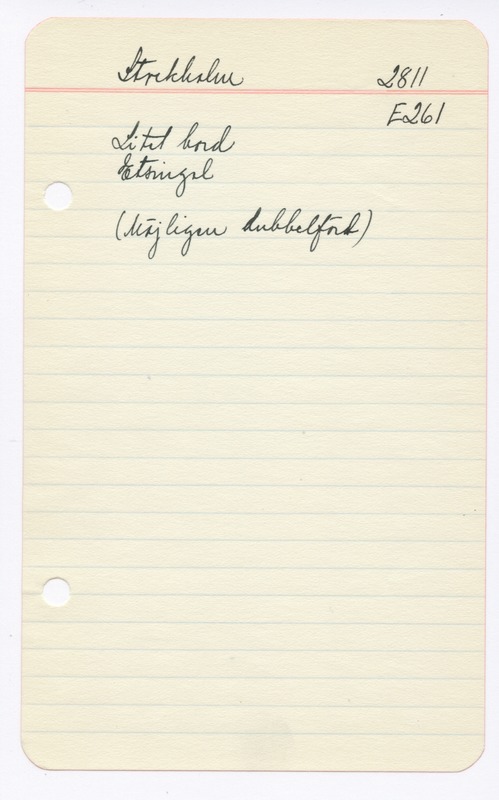 Stockholm 2811
E261
Litet bord
(Möjligen dubbelförd)